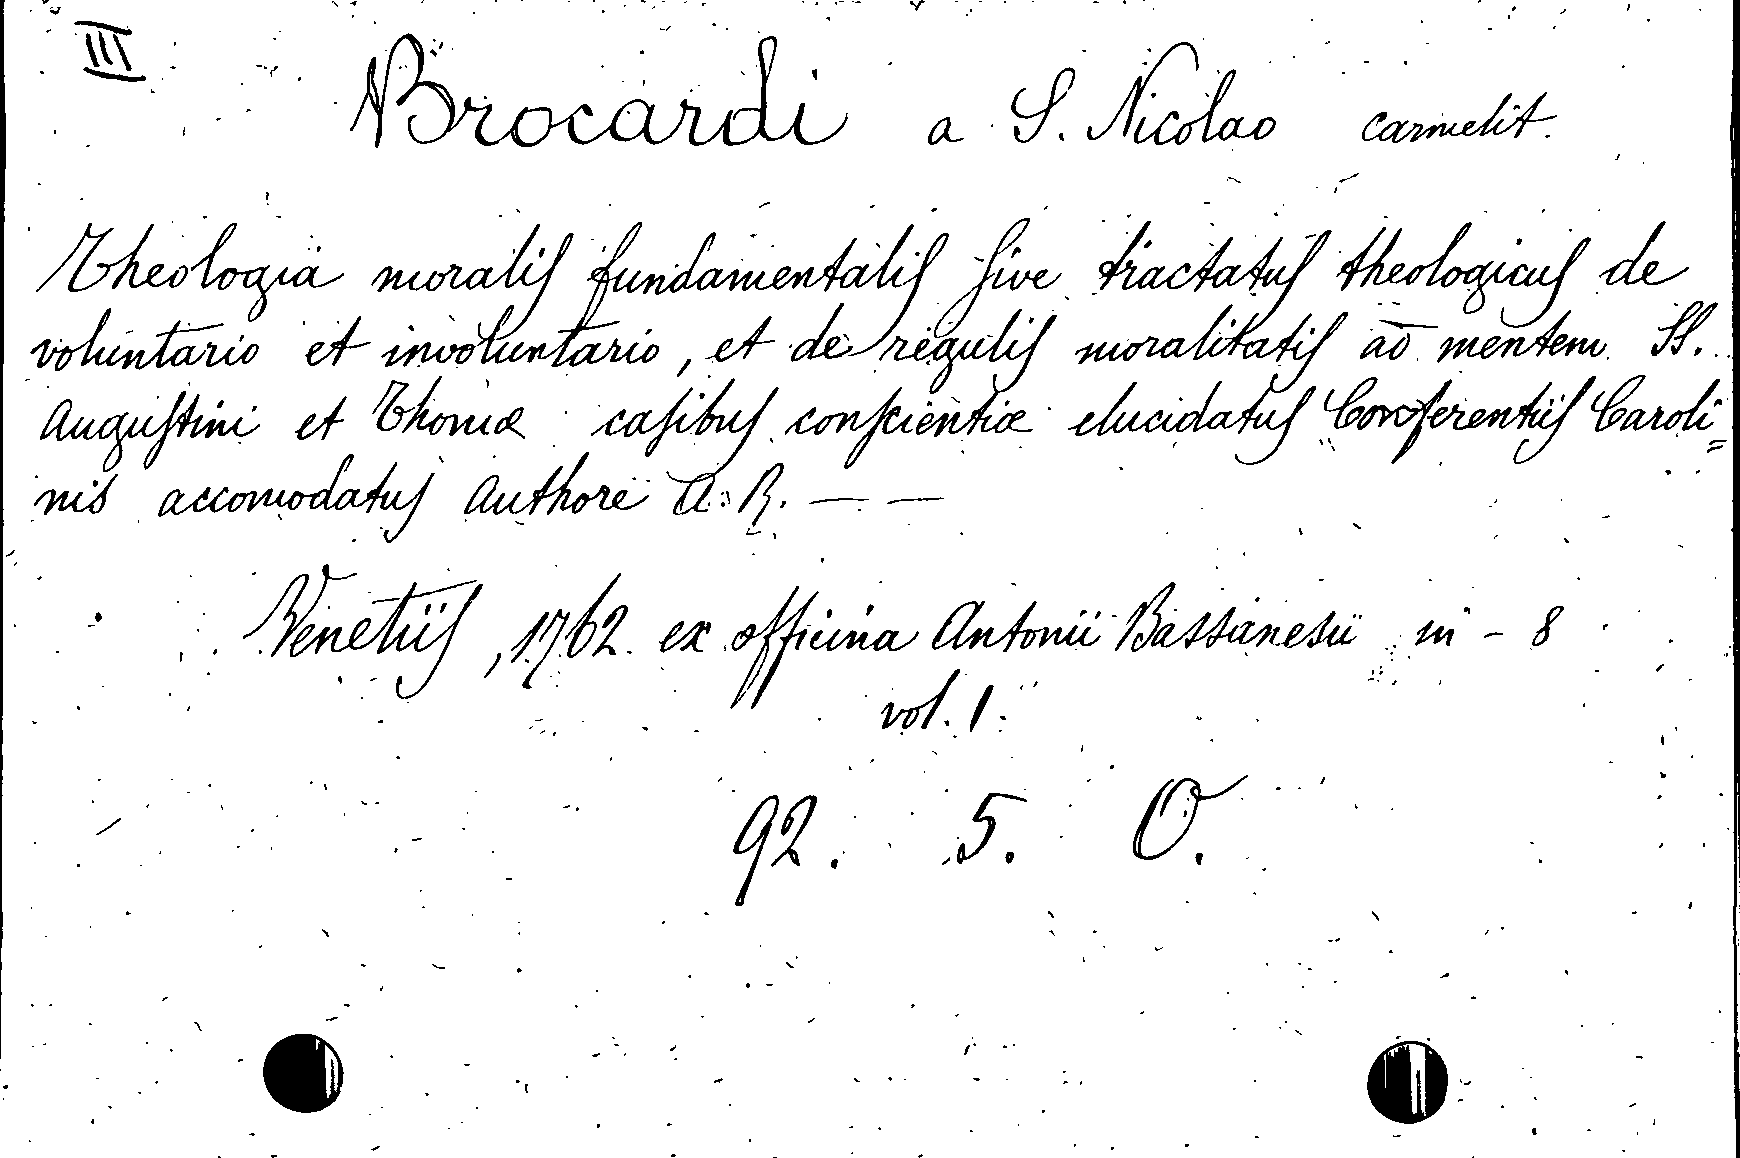 III
Brocardi a S. Nicolao carmelit.
Theologia moralis fundamentalis sive tractatus theologicus de
voluntario et involuntario, et de regulis moralitatis ad mentem SS.
Augustini et Thomæ casibus conscientiæ elucidatus Conferentiis Caroli=
nis accomodatus Authore A: R. — —
Venetiis, 1762 ex officina Antonii Bassanesii in - 8
vol. 1.
92. 5. O.